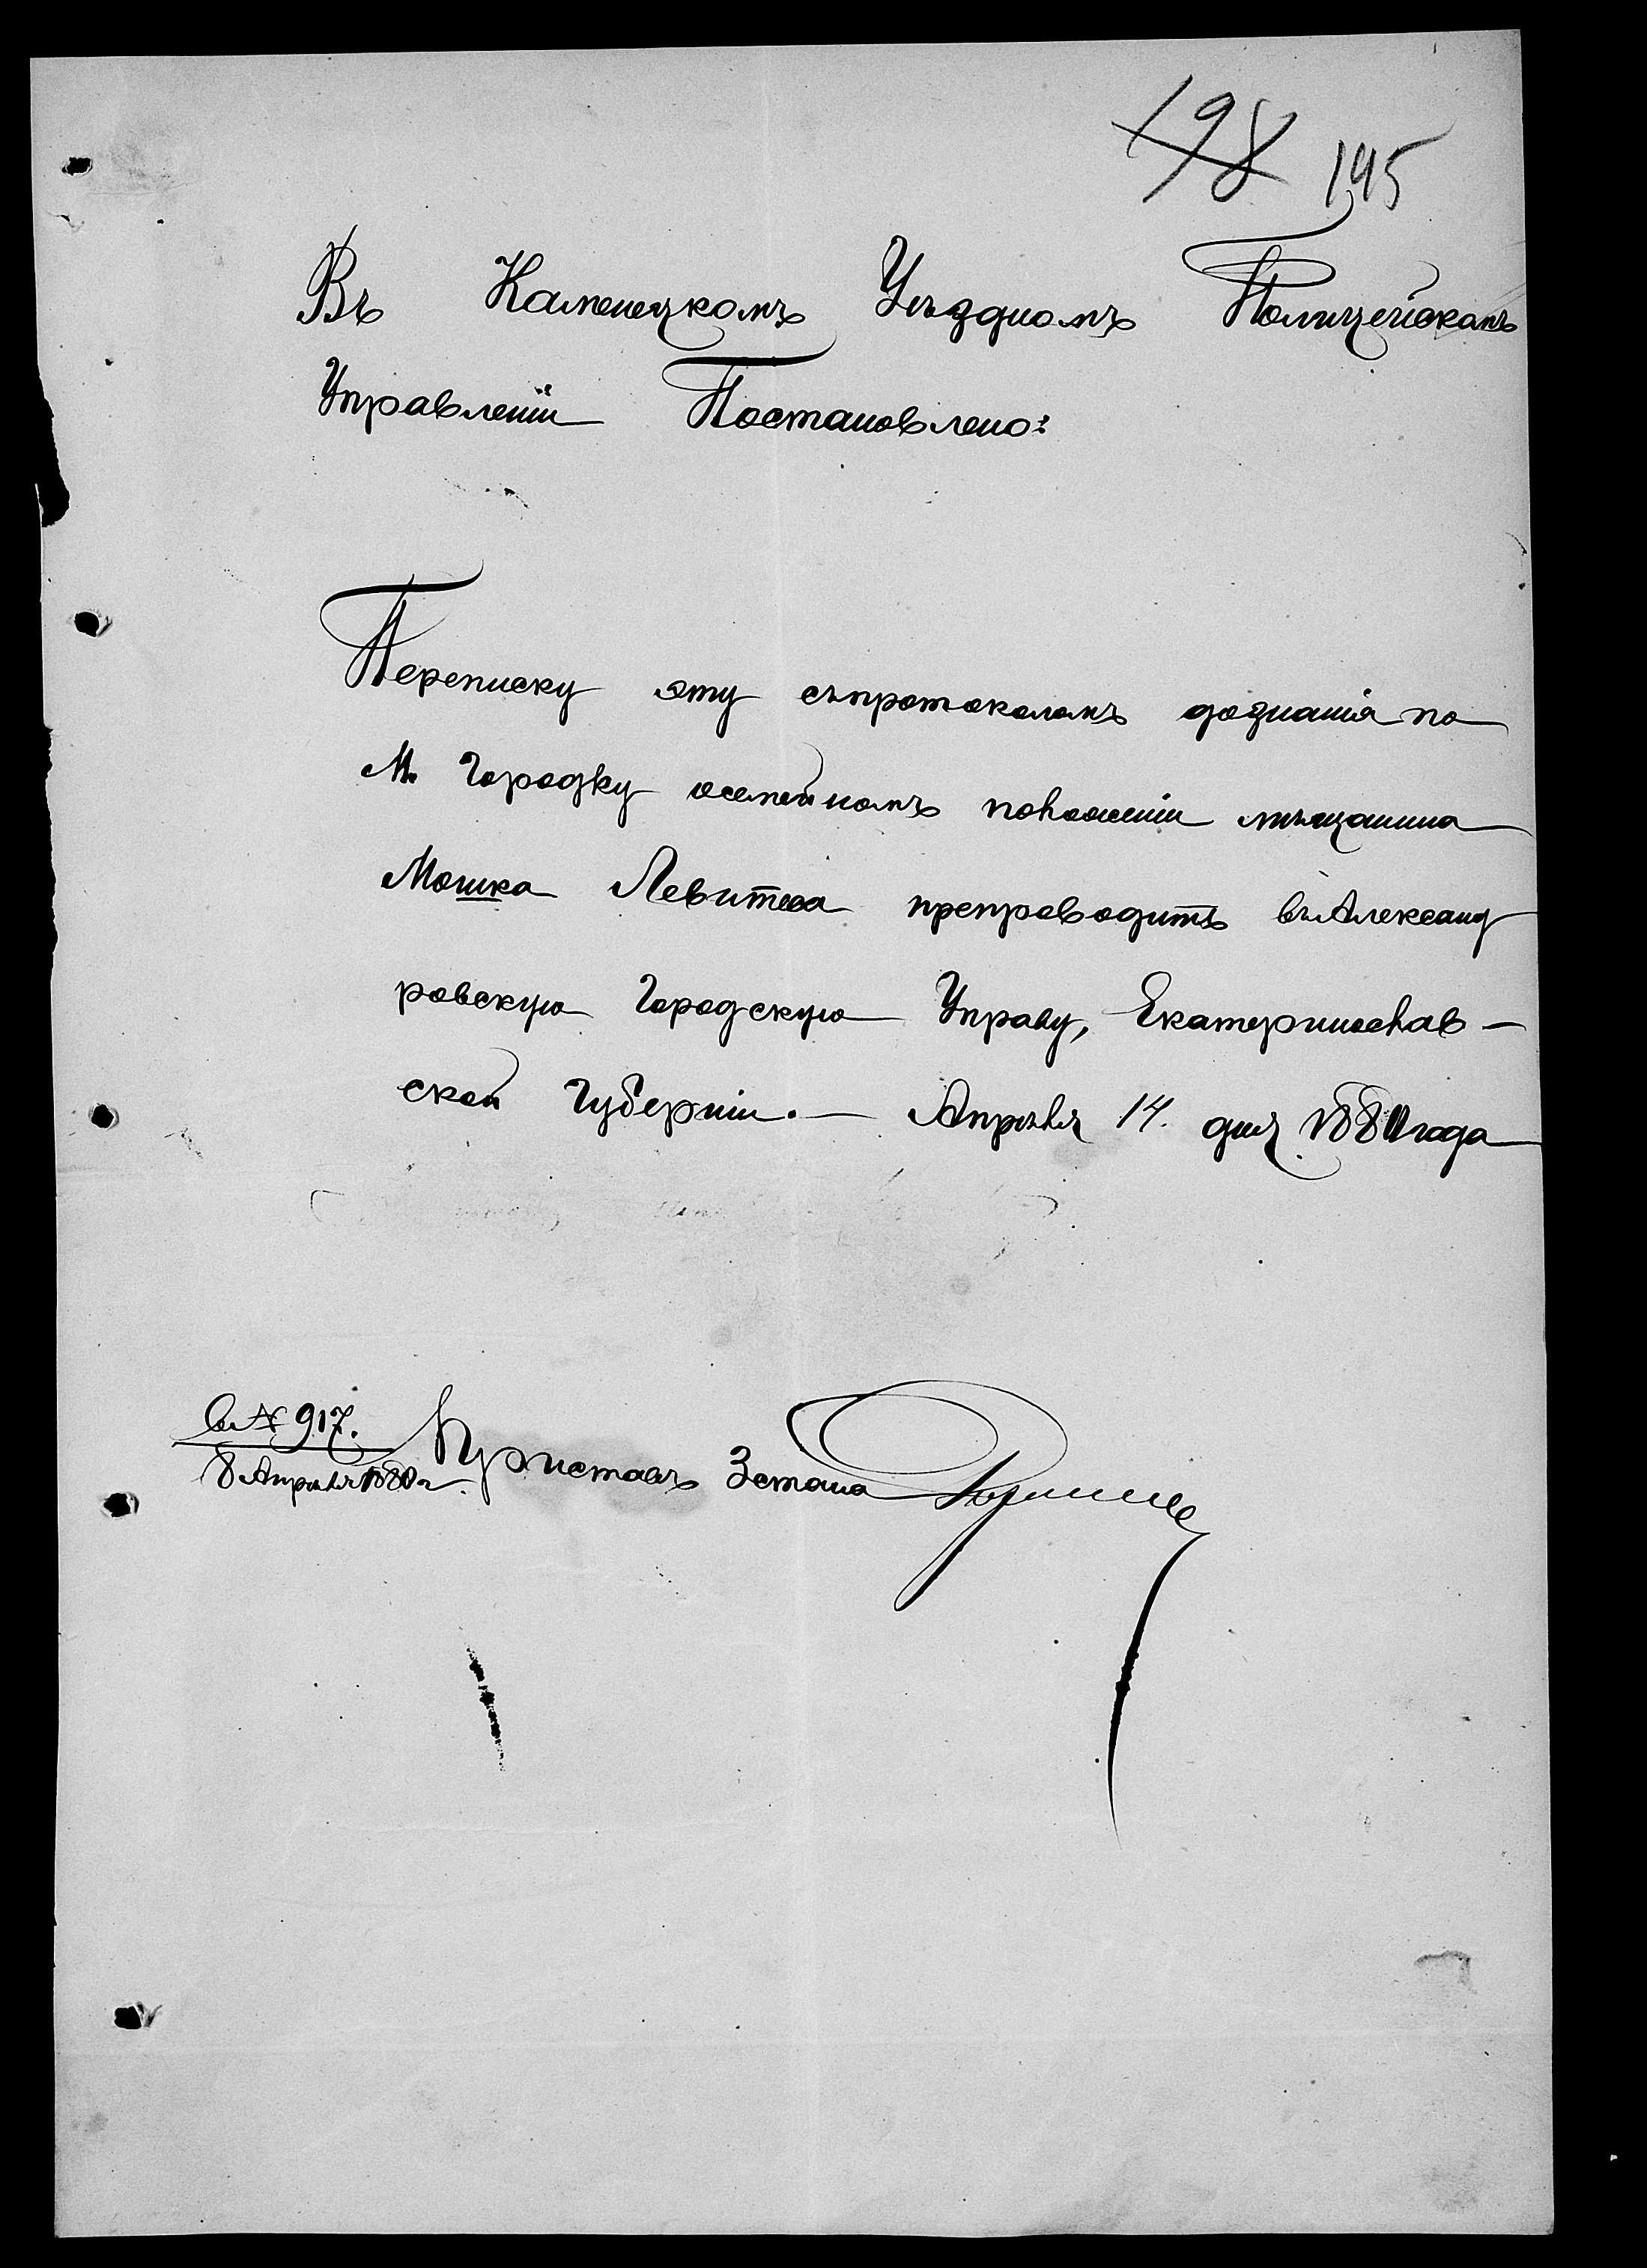 198 145
Въ Каменецкомъ Уѣздномъ Полицейскомъ
Управленіи Постановлено:
Переписку эту съпротоколомъ дознанія по
М. Городку осемейномъ положеніи мѣщанина
Мошка Левитеса препроводить въАлександ
ровскую Городскую Управу, Екатеринослав-
ской Губерніи.— Апрѣля 14. дня 1880 года
№ 917.
8 Апрѣля 1880 г. Приставъ 3 стана